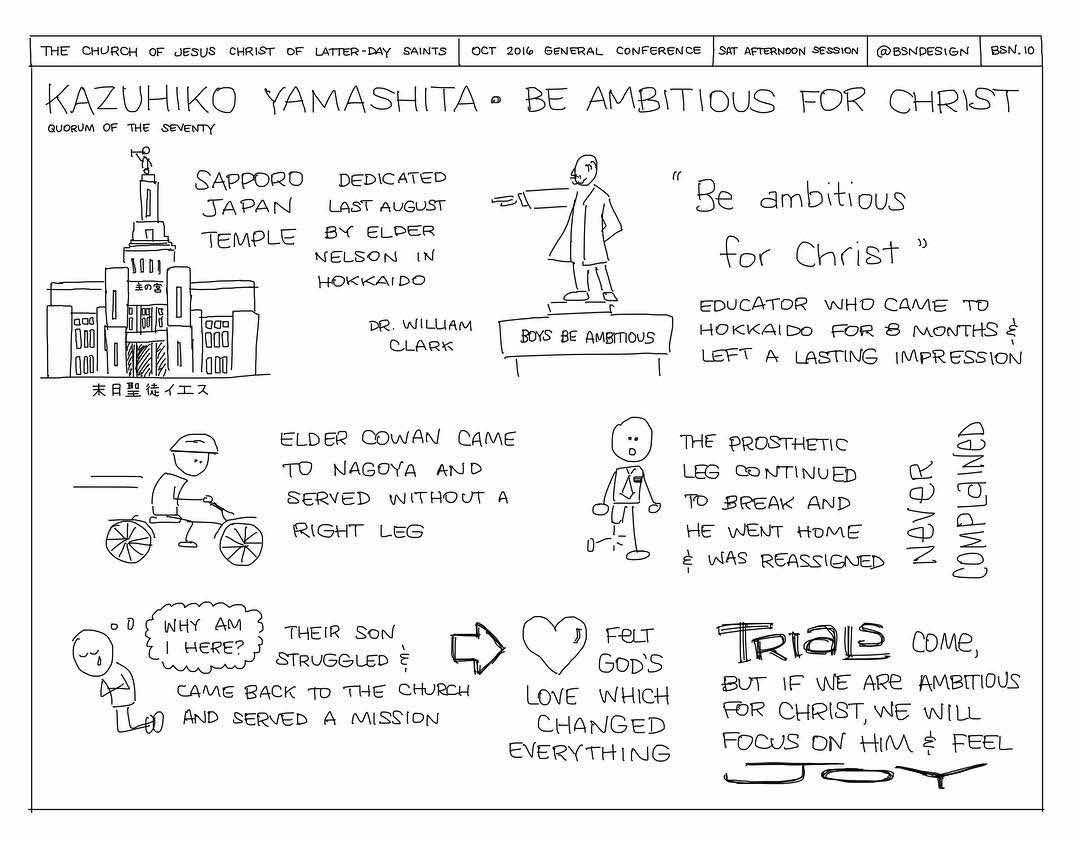 THE CHURCH OF JESUS CHRIST OF LATTER-DAY SAINTS
OCT 2016 GENERAL CONFERENCE
SAT AFTERNOON SESSION
@BSNDESIGN
BSN.10
KAZUHIKO YAMASHITA • BE AMBITIOUS FOR CHRIST
QUORUM OF THE SEVENTY
主の宮
末日聖徒イエス
SAPPORO
JAPAN
TEMPLE
DEDICATED
LAST AUGUST
BY ELDER
NELSON IN
HOKKAIDO
DR. WILLIAM
CLARK
BOYS BE AMBITIOUS
"Be ambitious
for Christ"
EDUCATOR WHO CAME TO
HOKKAIDO FOR 8 MONTHS &
LEFT A LASTING IMPRESSION
ELDER COWAN CAME
TO NAGOYA AND
SERVED WITHOUT A
RIGHT LEG
THE PROSTHETIC
LEG CONTINUED
TO BREAK AND
HE WENT HOME
& WAS REASSIGNED
NEVER
COMPLAINED
WHY AM
I HERE?
THEIR SON
STRUGGLED &
CAME BACK TO THE CHURCH
AND SERVED A MISSION
FELT
GOD'S
LOVE WHICH
CHANGED
EVERYTHING
TRIALS COME,
BUT IF WE ARE AMBITIOUS
FOR CHRIST, WE WILL
FOCUS ON HIM & FEEL
JOY